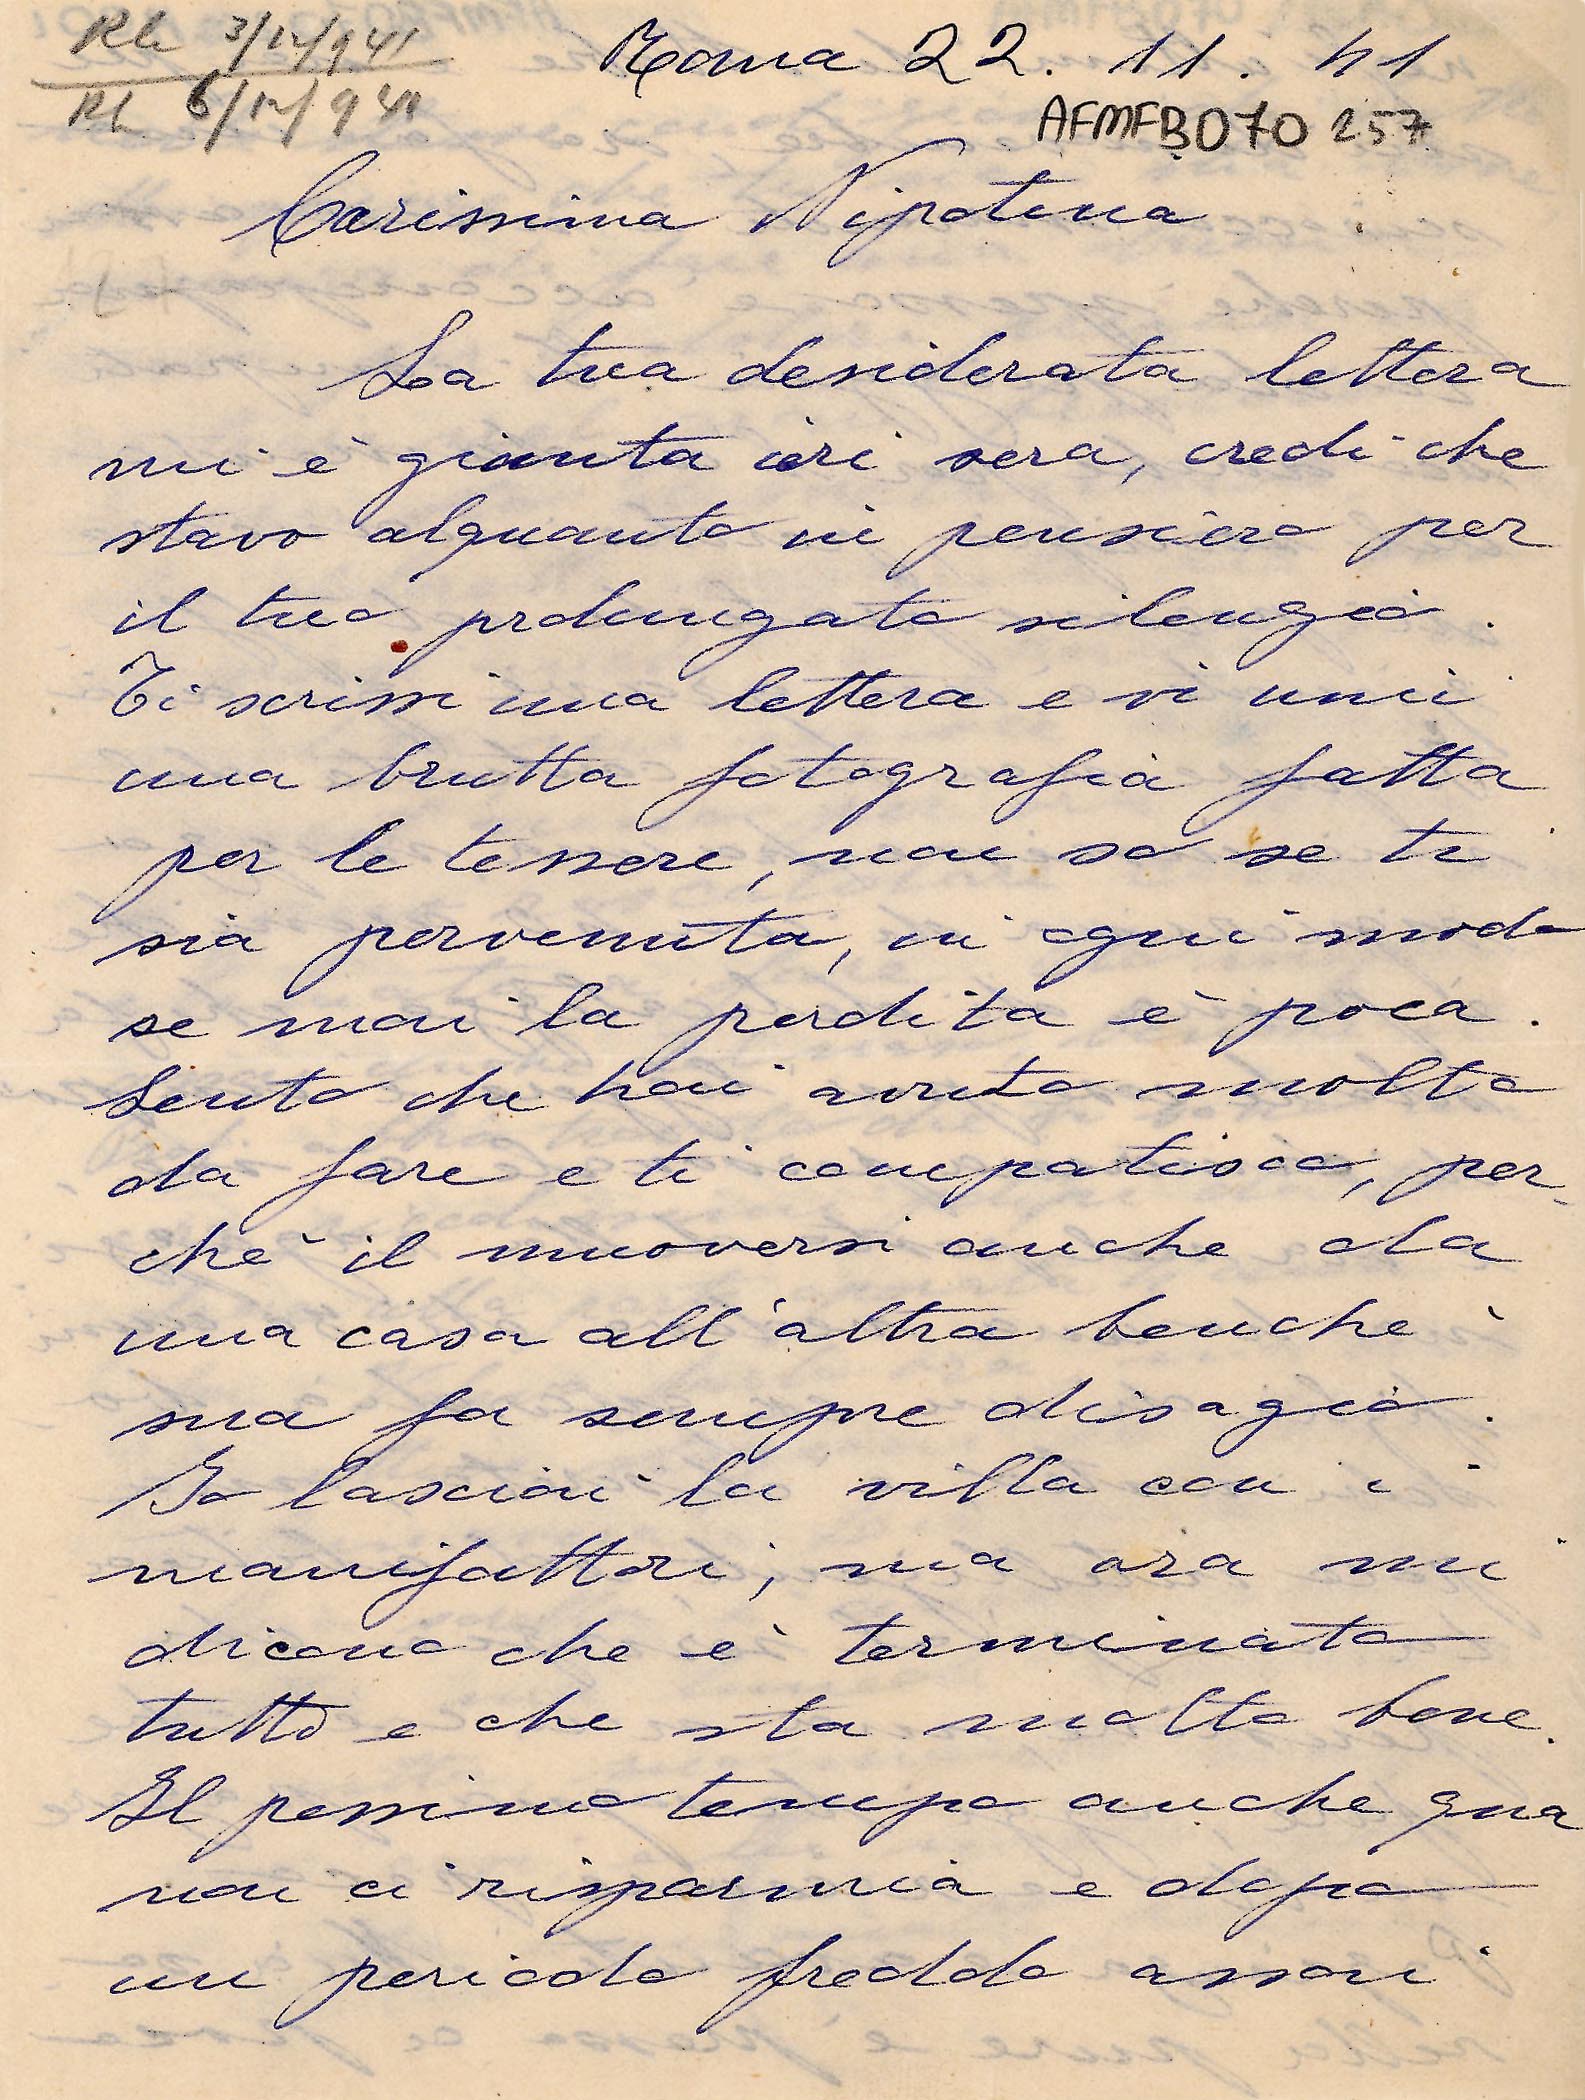 Rh 3/12/941
Rh 6/12/941
Roma 22. 11. 41
AFMFB070 257
Carissima Nipotina
La tua desiderata lettera
mi è giunta ieri sera, credi che
stavo alquanto in pensiero per
il tuo prolungato silenzio.
Ti scrissi una lettera e vi unii
una brutta fotografia fatta
per le tessere, non so se ti
sia pervenuta, in ogni modo
se mai la perdita è poca.
Sento che hai avuto molto
da fare e ti compatisco, per-
chè il muoversi anche da
una casa all'altra benchè
sua fa sempre disagio.
Io lasciai la villa con i
manifattori, ma ora mi
dicono che è terminato
tutto e che sta molto bene.
Il pessimo tempo anche qua
non ci risparmia e dopo
un periodo freddo assai